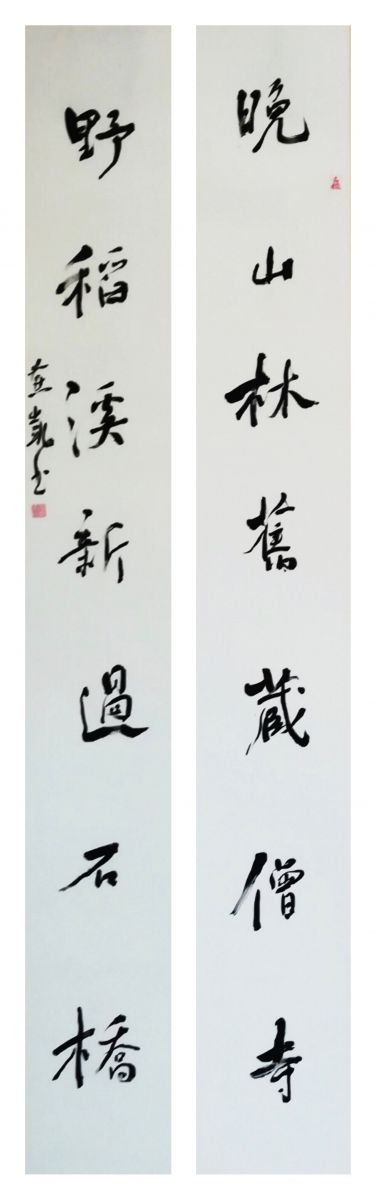 晚山林舊藏僧寺
野稻溪新過石橋